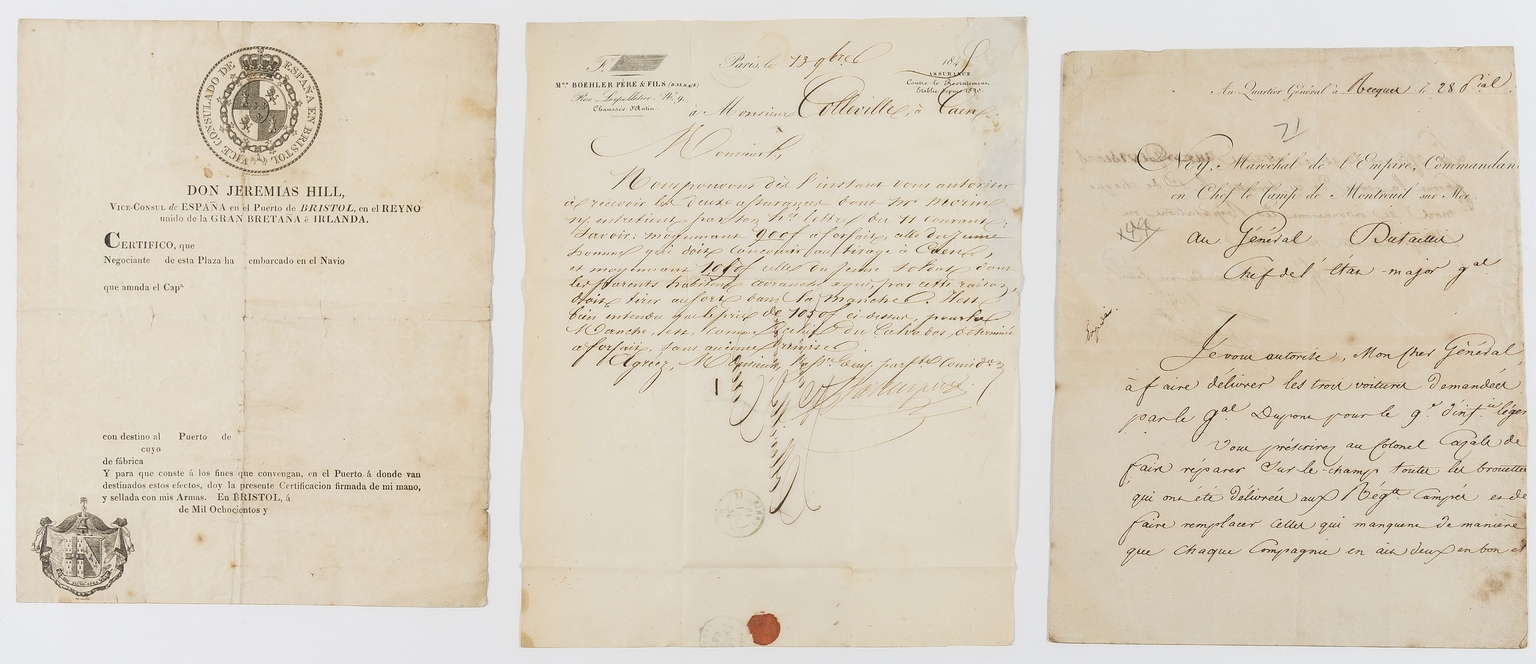 VICE CONSULADO DE ESPAÑA EN BRISTOL
DON JEREMIAS HILL,
VICE-CONSUL de ESPAÑA en el Puerto de BRISTOL, en el REYNO
unido de la GRAN BRETAÑA é IRLANDA.
CERTIFICO, que
Negociante de esta Plaza ha embarcado en el Navio
que amnda el Capn
con destino al Puerto de
cuyo
de fábrica
Y para que conste á los fines que convengan, en el Puerto á donde van
destinados estos efectos, doy la presente Certificacion firmada de mi mano,
y sellada con mis Armas. En BRISTOL, á
de Mil Ochocientos y
F.
Paris, le 13 9bre 184
Mon BOEHLER PÈRE & FILS
Rue Lepelletier, No 9,
Chaussée d'Antin.
ASSURANCE
Contre le Recrutement
Etablie depuis 1820.
à Monsieur Colleville, à Caen
Monsieur,
Nous pouvons dès l'instant vous autoriser
à recevoir les deux assurances dont Mr Morin
n/ entretient par son hre lettre du 11 courant,
Savoir: moyennant 900f à forfait, celle du jeune
homme qui doit concourir au tirage à Caen,
et moyennant 1050f celle du jeune soldat dont
les parents habitent Avranches & qui par cette raison,
doit tirer au sort dans la Manche. Il est
bien entendu que le prix de 1050f ci dessus, pour la
Manche, est, comme celui du Calvados, déterminé
à forfait, sans aucune remise
Agréez, Monsieur,
Au Quartier Général à Recques le 28 P.ial
21
Ney, Maréchal de l'Empire, Commandan
en Chef le Camp de Montreuil sur Mer
Au Général Dutaillis
Chef de l'état-major gal
Expédié
Je vous autorise, Mon Cher Général
à faire délivrer les trois voitures demandées
par le gal Dupont pour le 9e d'infie légèr
Vous prescrirez au Colonel Cazals de
faire réparer sur-le-champ toutes les brouettes
qui ont été délivrées aux Régts Campés et de
faire remplacer celles qui manquent de manière
que chaque Compagnie en ait deux en bon et